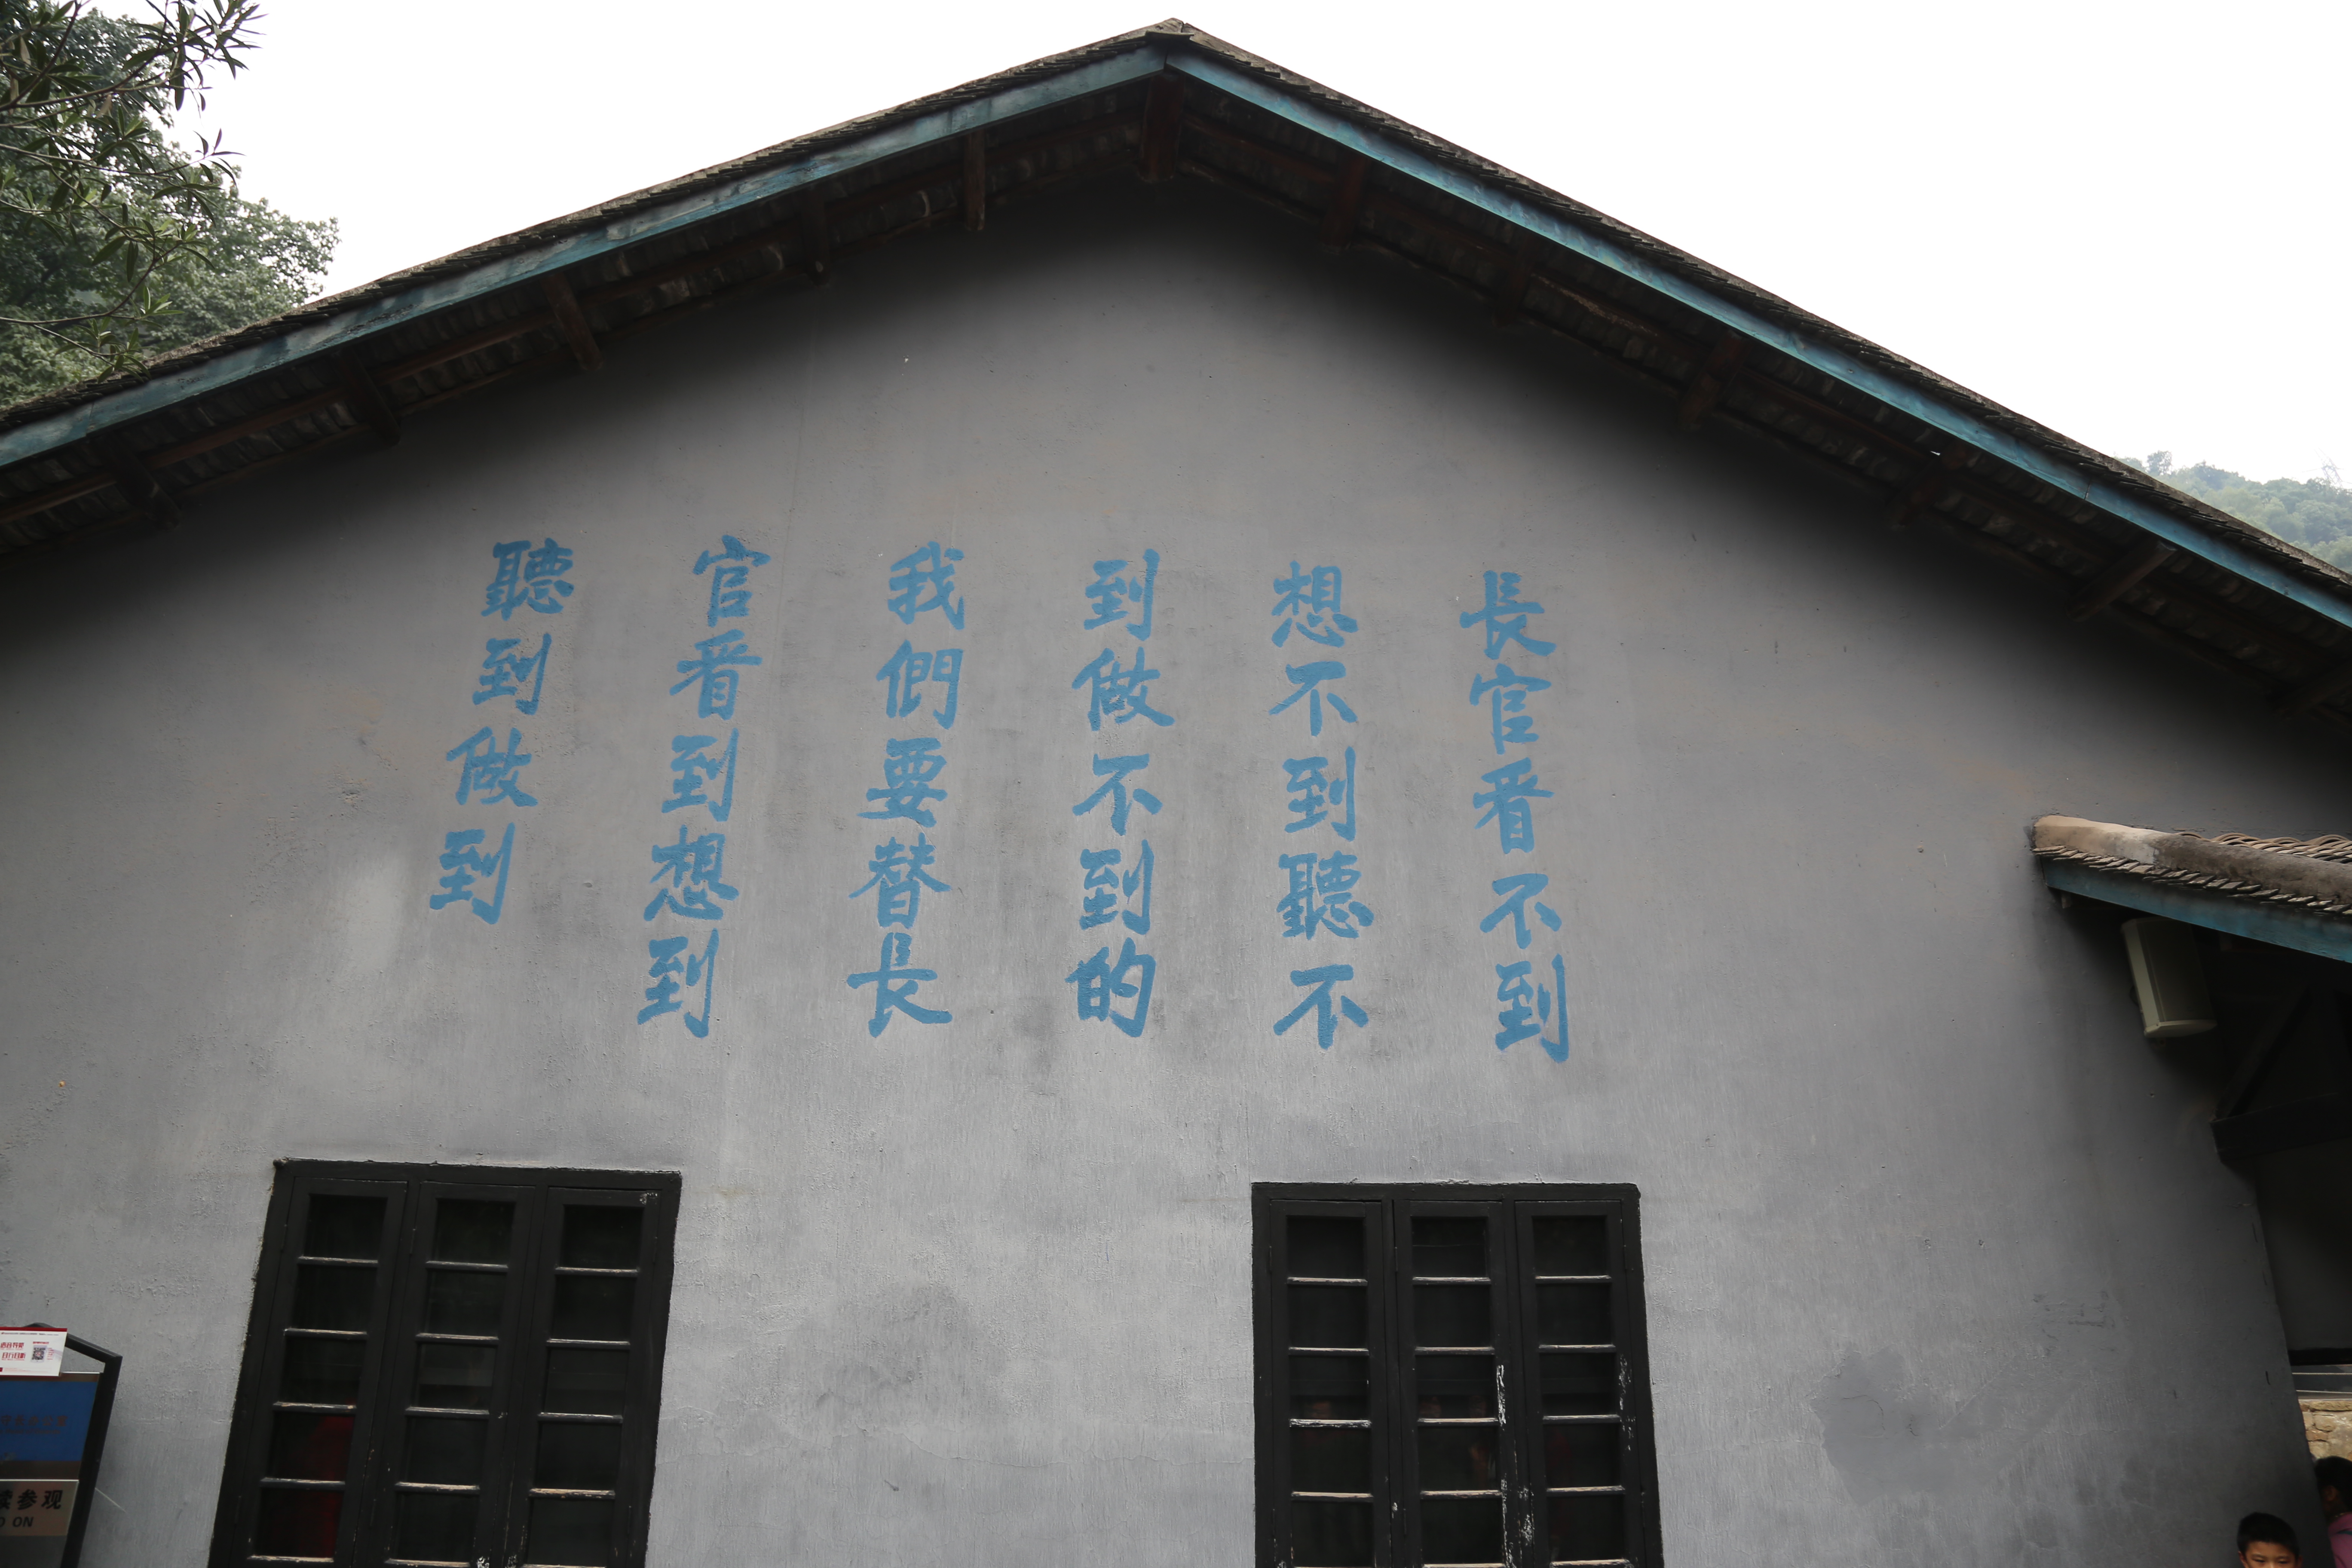 長官看不到
想不到聽不
到做不到的
我們要替長
官看到想到
聽到做到
参观
ON